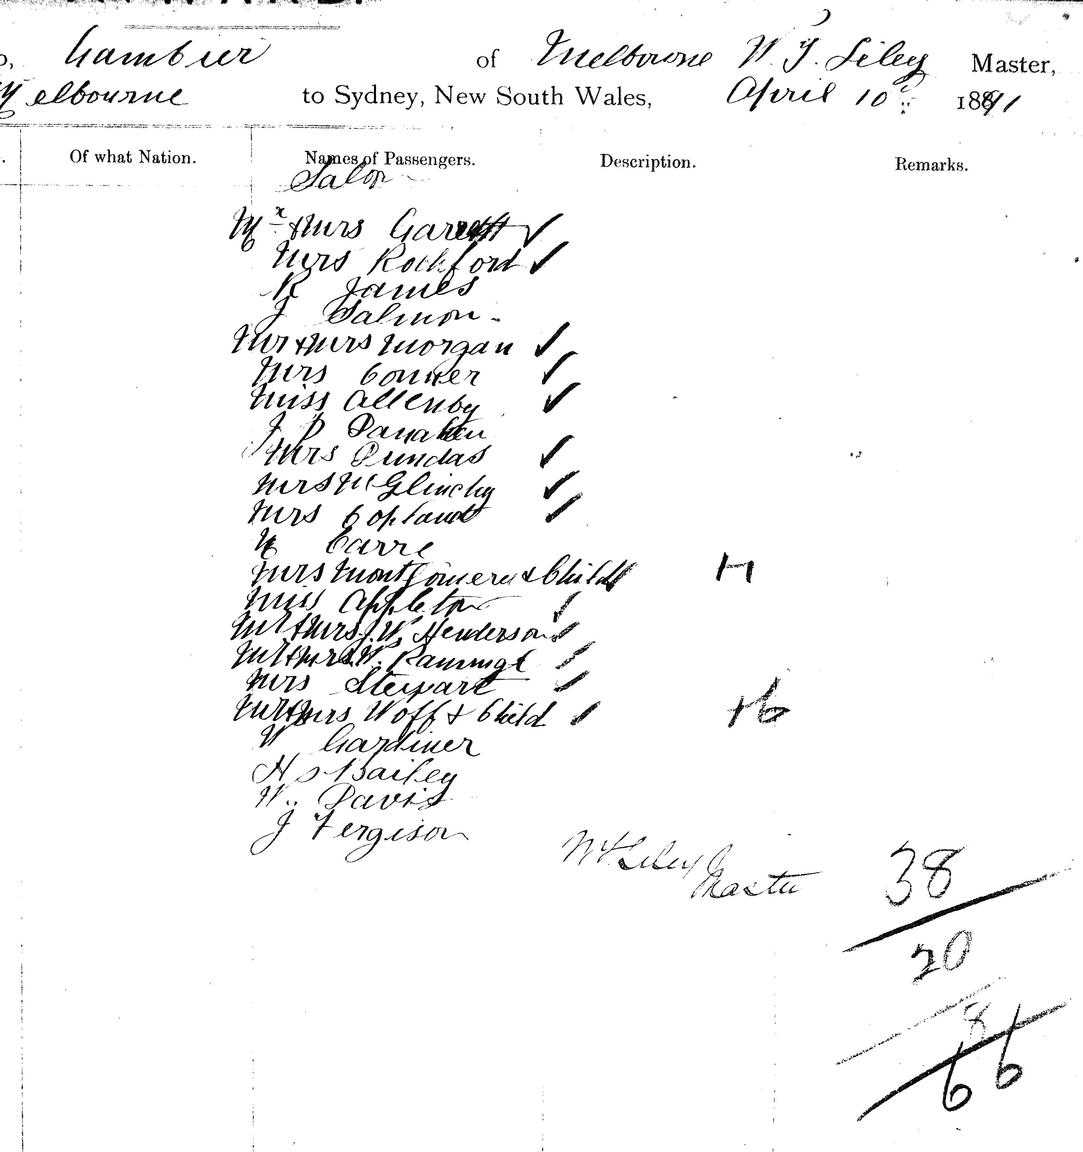 Gambier of Melbourne W. J. Siley Master,
Melbourne to Sydney, New South Wales, April 10 1891
Of what Nation. Names of Passengers. Description. Remarks.
Salon
Mr & Mrs Garett
Mrs Rochford
R James
J Salmon
Mr & Mrs Morgan
Mrs Conner
Miss Allenby
J P
Mrs Dundas
Mrs McGlinchy
Mrs Copland
Carre
Mrs Montgomery & Child H
Miss Appleton
Mr & Mrs J. W. Henderson
Mr & Mrs W.
Mrs Stewart
Mr & Mrs Woff & Child
W Gardiner
H S Bailey
W. Davis
J Fergison
Siley
Master
38
20
8
66